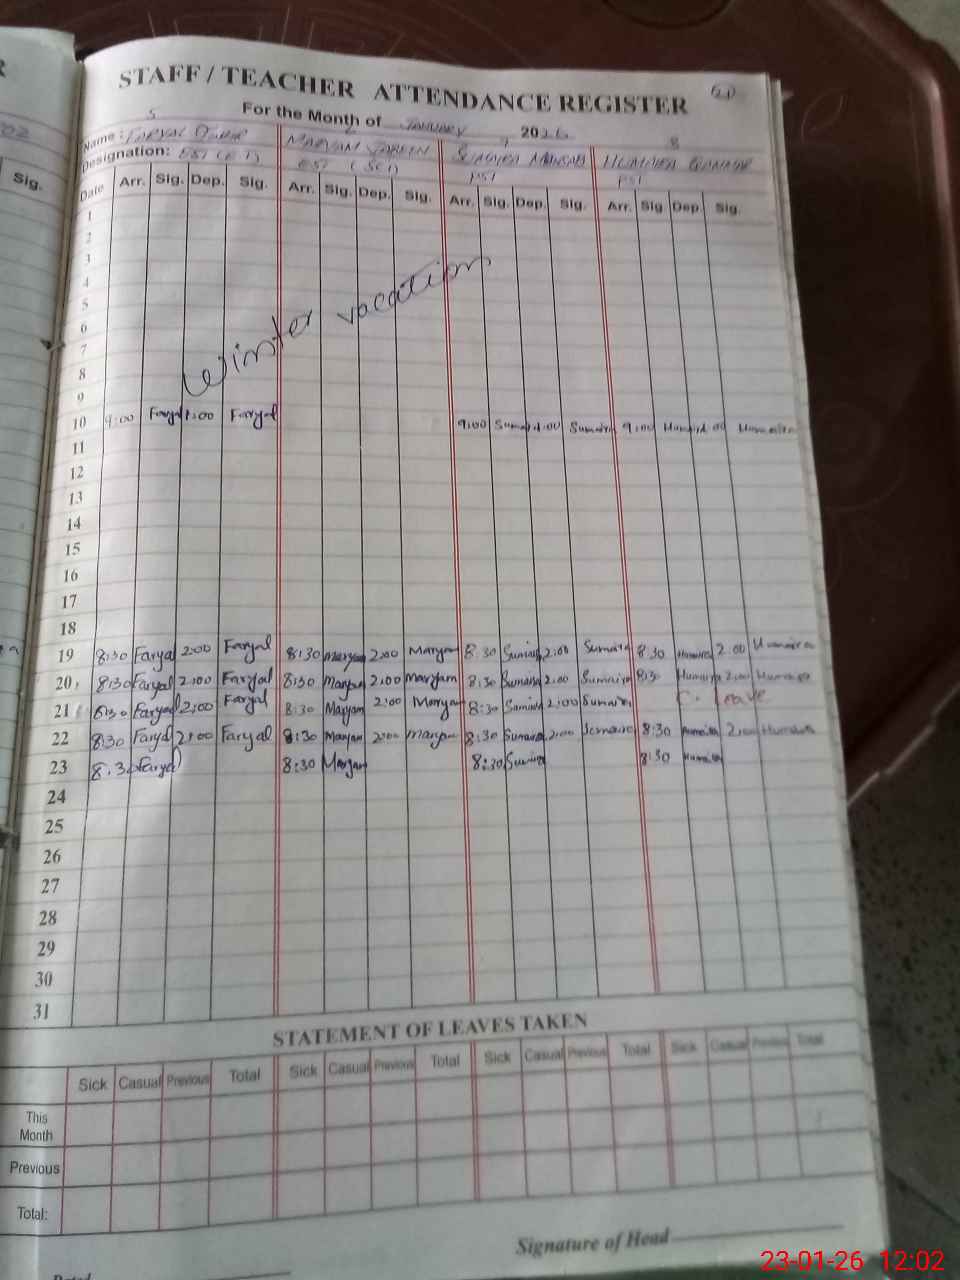 STAFF / TEACHER ATTENDANCE REGISTER
For the Month of January 2026
5 7 8
Name: Maryam
Designation: EST PST PST
Date Arr. Sig. Dep. Sig. Arr. Sig. Dep. Sig. Arr. Sig. Dep. Sig. Arr. Sig. Dep. Sig.
Sig.
1
2
3
4
5
6
7
8
Winter vacation
9
10 9:00 Faryal 1:00 Faryal 9:00 1:00 Sumaira 9:00 Humaira
11
12
13
14
15
16
17
18
19 8:30 Faryal 2:00 Faryal 8:30 Maryam 2:00 Maryam 8:30 Sumaira 2:00 Sumaira 8:30 Humaira 2:00 Humaira
20 8:30 Faryal 2:00 Faryal 8:30 Maryam 2:00 Maryam 8:30 Sumaira 2:00 Sumaira 8:30 Humaira 2:00 Humaira
21 8:30 Faryal 2:00 Faryal 8:30 Maryam 2:00 Maryam 8:30 Sumaira 2:00 Sumaira C. Leave
22 8:30 Faryal 2:00 Faryal 8:30 Maryam 2:00 Maryam 8:30 Sumaira 2:00 Sumaira 8:30 Humaira 2:00 Humaira
23 8:30 Faryal 8:30 Maryam 8:30 Sumaira 8:30 Humaira
24
25
26
27
28
29
30
31
STATEMENT OF LEAVES TAKEN
Sick Casual Previous Total Sick Casual Previous Total Sick Casual Previous Total Sick Casual Previous Total
This
Month
Previous
Total:
Signature of Head
Dated
23-01-26 12:02